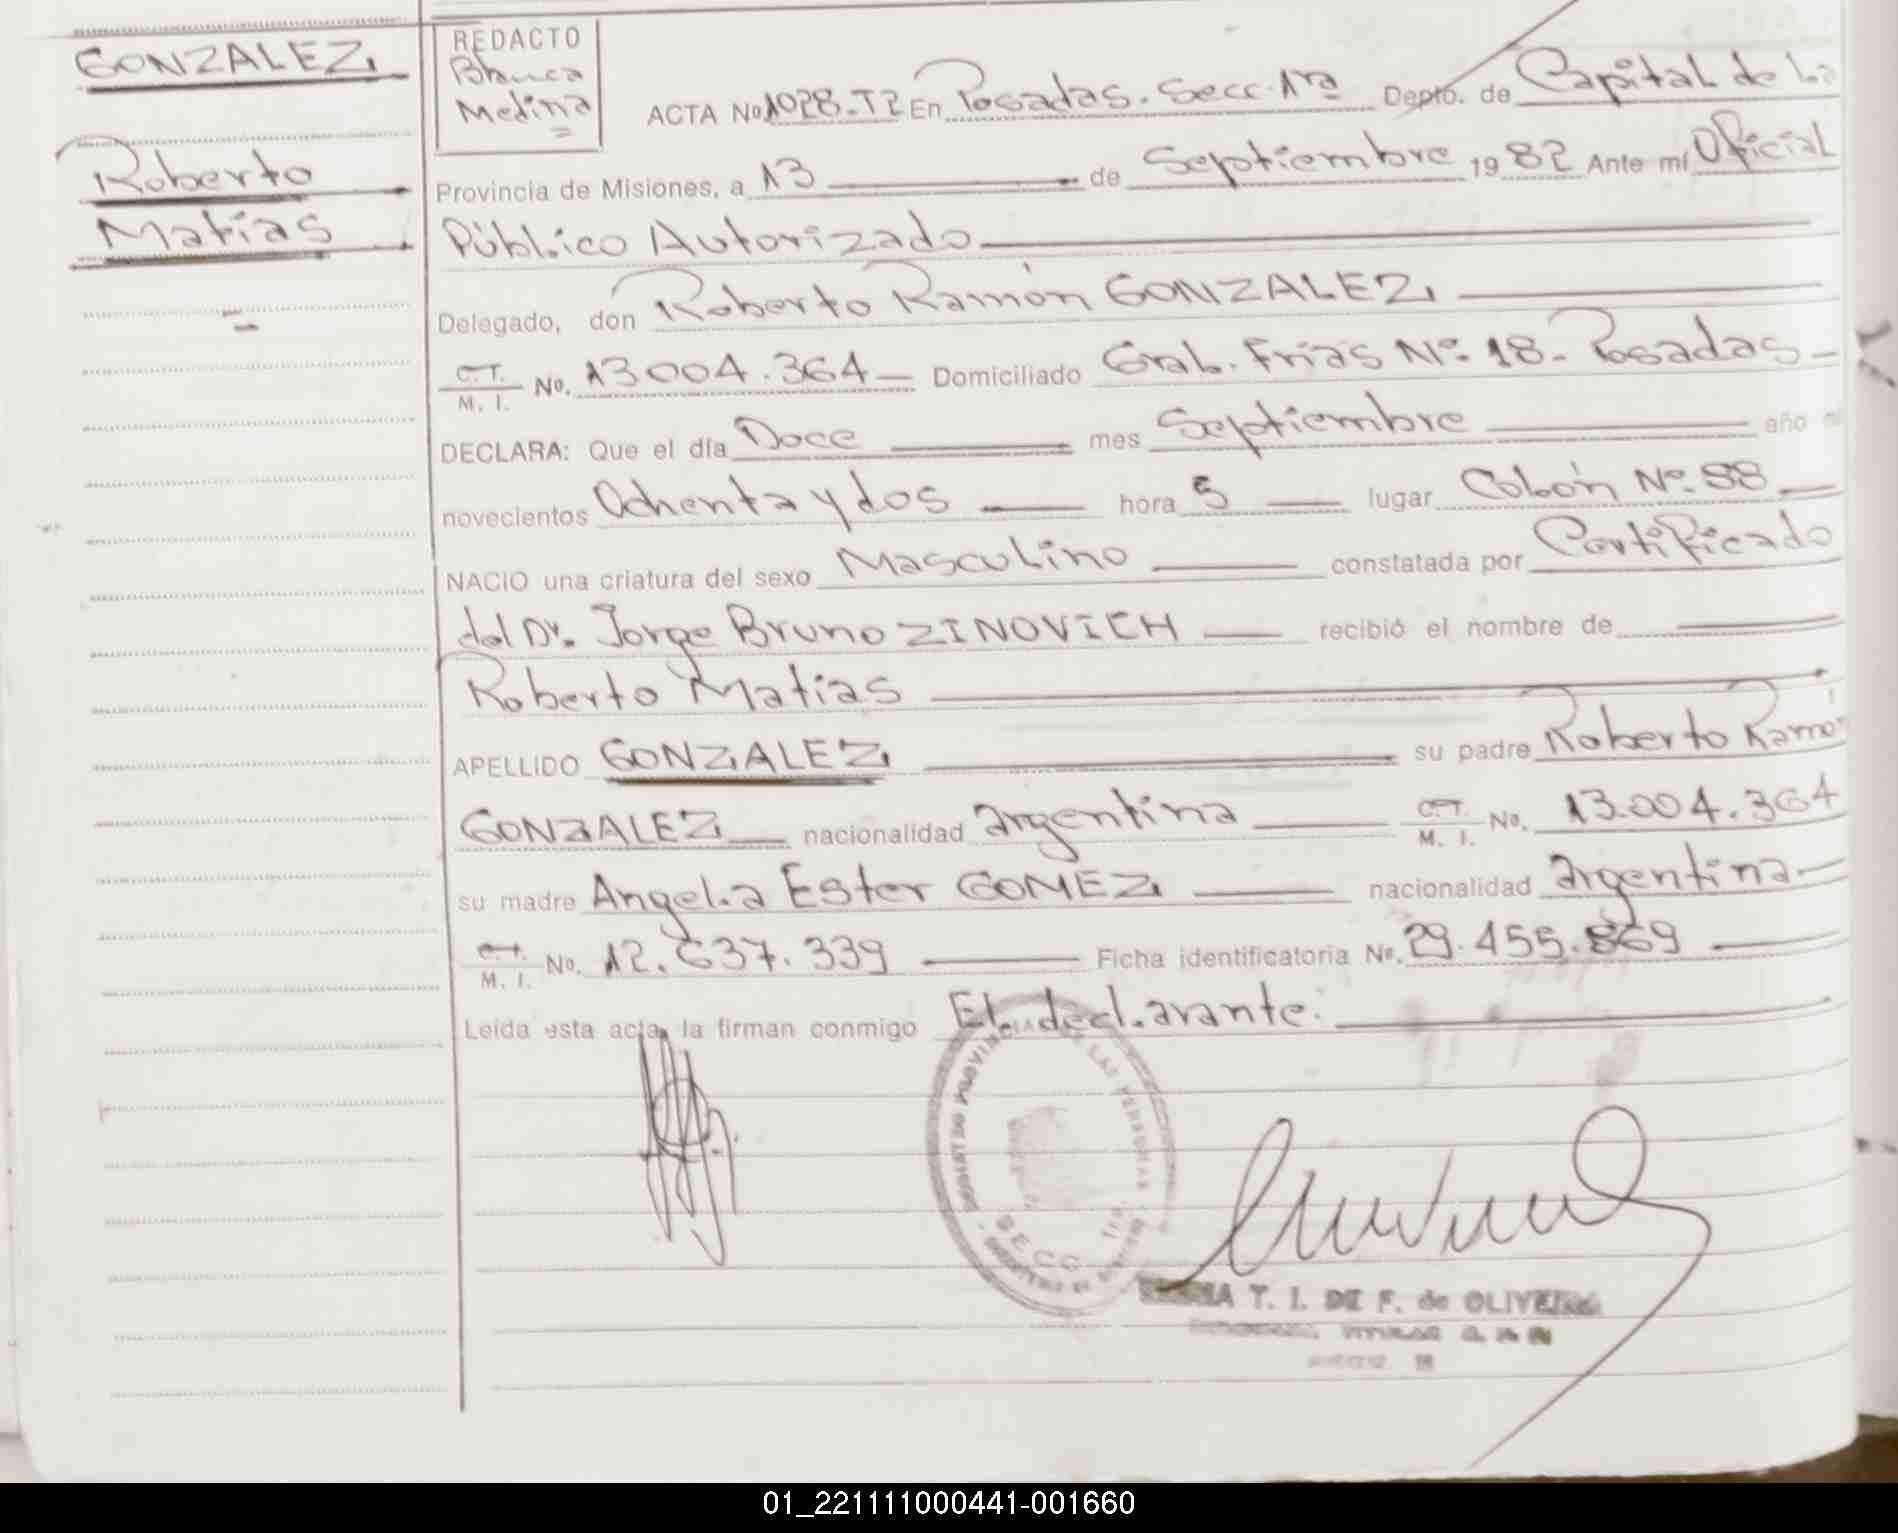 GONZALEZ
Roberto
Matias
REDACTO
Blanca
Medina
ACTA No 1028-T2 En Posadas. Secc. 1ra Depto. de Capital de La
Provincia de Misiones, a 13 de Septiembre 1982 Ante mí Oficial
Público Autorizado
Delegado, don Roberto Ramón GONZALEZ
C.T. M. I. No. 13004.364 Domiciliado Gral. Frias Nº 18- Posadas
DECLARA: Que el día Doce mes Septiembre año
novecientos Ochenta y dos hora 5 lugar Colón Nº 88
NACIO una criatura del sexo Masculino constatada por Certificado
del Dr. Jorge Bruno ZINOVICH recibió el nombre de
Roberto Matias
APELLIDO GONZALEZ su padre Roberto Ramón
GONZALEZ nacionalidad argentina C.T. M. I. No. 13.004.364
su madre Angela Ester GOMEZ nacionalidad argentina
C.T. M. I. No. 12.637.339 Ficha identificatoria No. 29.455.869
Leída esta acta, la firman conmigo El declarante.
SECC 1ra.
T. I. DE F. de OLIVEIRA
01_221111000441-001660